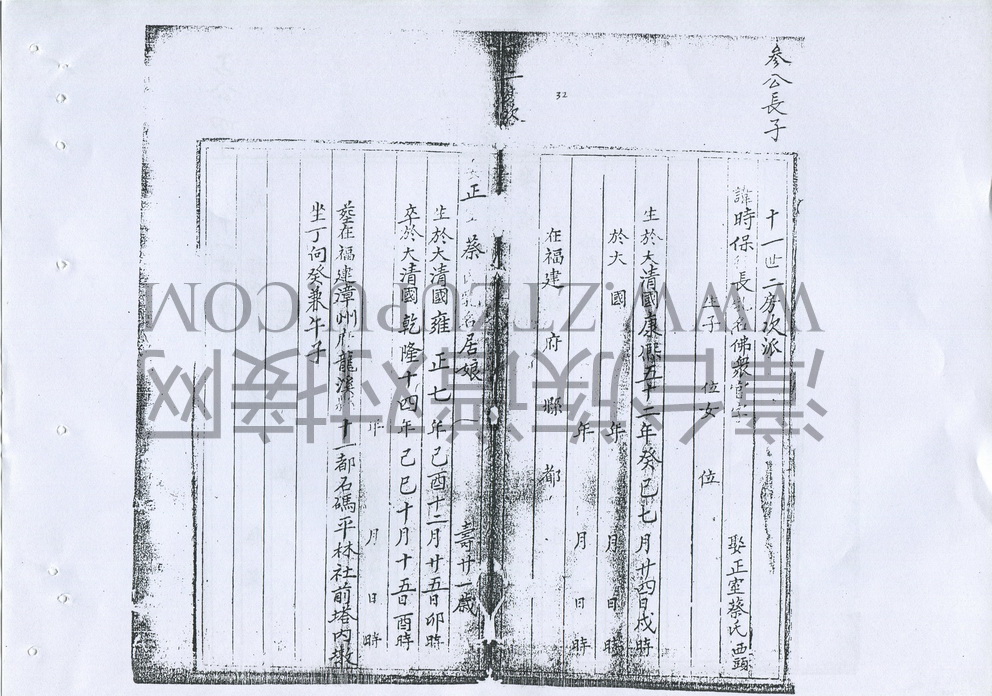 參公長子
十一世二房次派
諱時保 長 名佛衆官 娶正室蔡氏西頭
生子 位女 位
生於大清國康熙五十二年癸巳七月廿四日戌時
於大 國 年 月 日 時
年 月 日 時
在福建 府 縣 都
32
正 蔡 名居娘 壽廿一歲
生於大清國雍正七年己酉十二月廿五日卯時
卒於大清國乾隆十四年己巳十月十五日酉時
年 月 日 時
葬在福建漳州府龍溪 十一都石碼平林社前塔內
坐丁向癸兼午子
漳台族谱对接网
WWW.ZTZUPU.COM